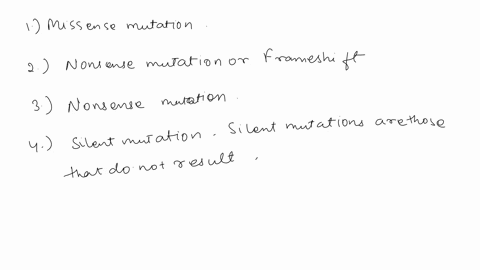 1) Missense mutation.
2.) Nonsense mutation or Frameshift
3) Nonsense mutation.
4.) Silent mutation. Silent mutations are those
that do not result.